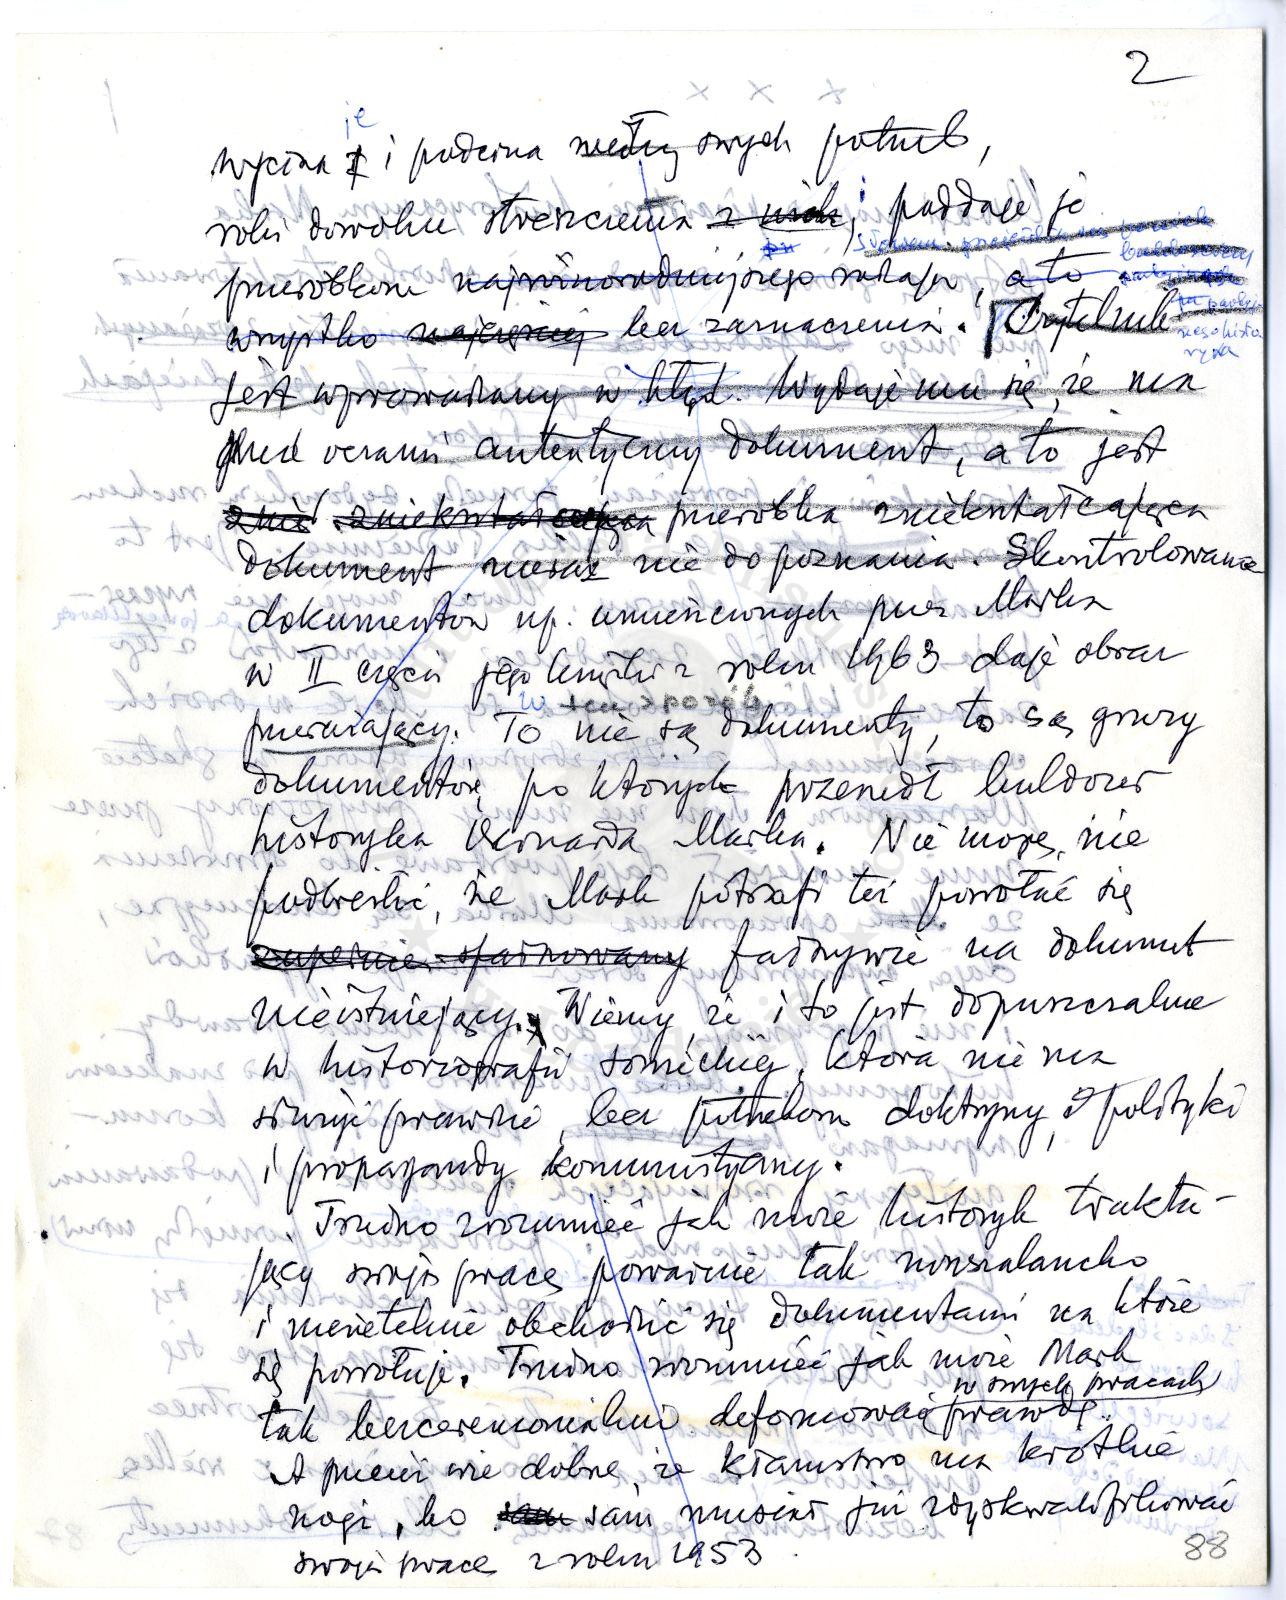 2
je
wycina i podcina według swych potrzeb,
robi dowolne streszczenia z nich, poddaje je
przeróbkom najróżnorodniejszego rodzaju, a to
wszystko najczęściej bez zaznaczenia. Czytelnik
jest wprowadzany w błąd. Wydaje mu się, że ma
przed oczami autentyczny dokument, a to jest
zniekształcająca przeróbka zniekształcająca
dokument nieraz nie do poznania. Skontrolowanie
dokumentów np. umieszczonych przez Marka
w II części jego książki z roku 1963 daje obraz
przerażający. To nie są dokumenty, to są gruzy
dokumentów, po których przeszedł buldożer
historyka Bernarda Marka. Nie mogę, nie
podkreślić, że Mark potrafi też powołać się
zupełnie sfabrykowany fałszywie na dokument
nieistniejący. Wiemy, że i to jest dopuszczalne
w historiografii sowieckiej, która nie ma
służyć prawdzie, lecz potrzebom doktryny, polityki
i propagandy komunistycznej.
Trudno zrozumieć jak może historyk traktu-
jący swoją pracę poważnie tak nonszalancko
i nierzetelnie obchodzić się dokumentami na które
się powołuje. Trudno zrozumieć jak może Mark
w swych pracach
tak bezceremonialnie deformować prawdę.
A przecież wie dobrze, że kłamstwo ma krótkie
nogi, bo sam musiał już zdyskwalifikować
swoją pracę z roku 1953.
88